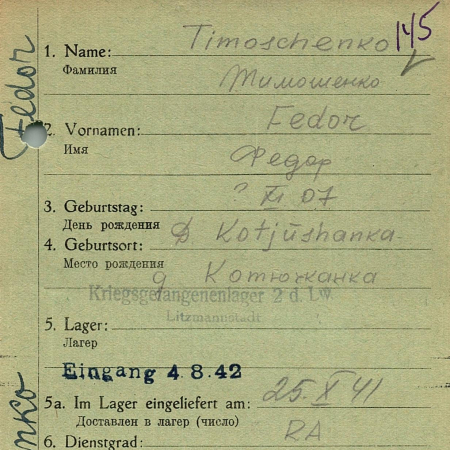 145
1. Name: Timoschenko
Фамилия Тимошенко
2. Vornamen: Fedor
Имя Федор
3. Geburtstag: ? XI 07
День рождения
4. Geburtsort: D. Kotjushanka
Место рождения д Котюжанка
Kriegsgefangenenlager 2 d. Lw.
Litzmannstadt
5. Lager:
Лагерь
Eingang 4.8.42
5a. Im Lager eingeliefert am: 25. X 41
Доставлен в лагер (число)
6. Dienstgrad: RA
Fedor
nko